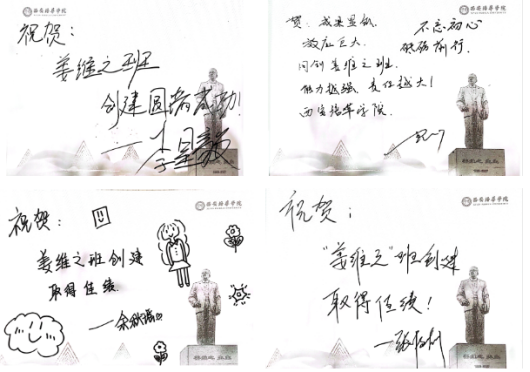 西安培华学院
祝贺：
姜维之班
创建圆满成功！
西安培华学院
贺：成果显著
效应巨大.
同创姜维之班.
能力越强 责任越大！
西安培华学院.
不忘初心
砥砺前行.
西安培华学院
祝贺：
姜维之班创建
取得佳绩.
西安培华学院
祝贺：
"姜维之"班创建
取得佳绩！